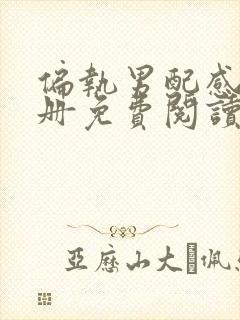 偏執男配感
冊免費閱讀
亞歷山大佩